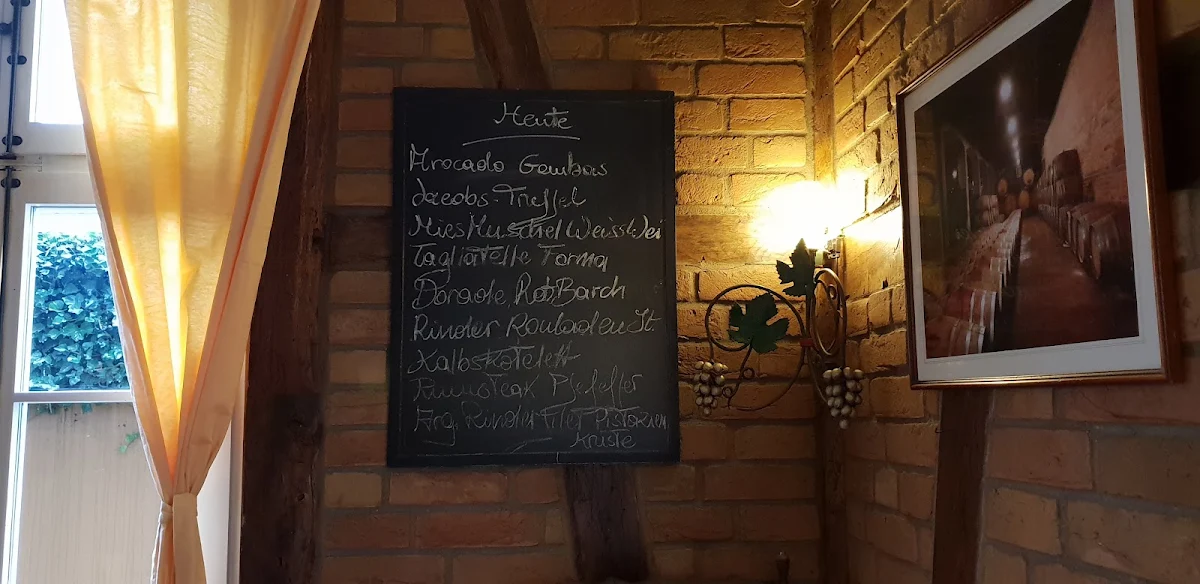 Heute
Avocado Gambas
Jacobs-Treffel
Mies Muschel WeissWei
Tagliatelle Tarma
Dorade Rot Barch
Rinder Rouladen St.
Kalbskotelett
Pfeffer
Arg. Rinder Filet Pistazien
Kruste